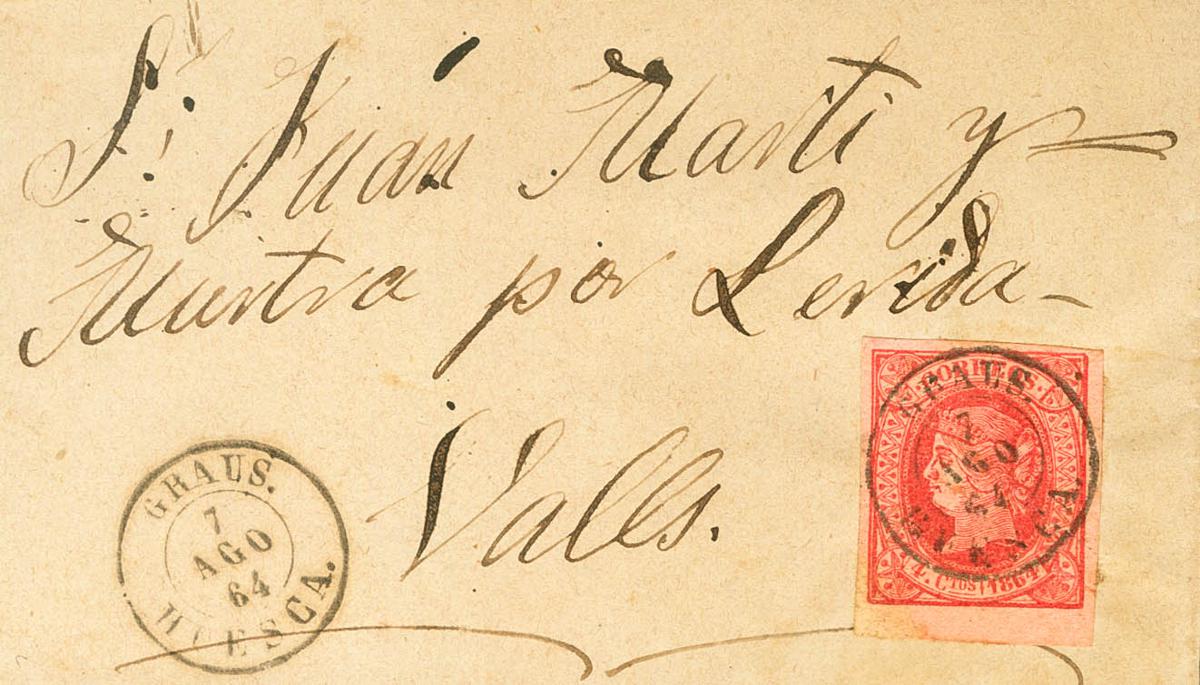 Sr. Juán Marti y
Muntra por Lerida-
Valls.
GRAUS.
7
AGO
64
HUESCA.
CORREOS.
GRAUS.
7
AGO
64
HUESCA.
4. Ctos 1864